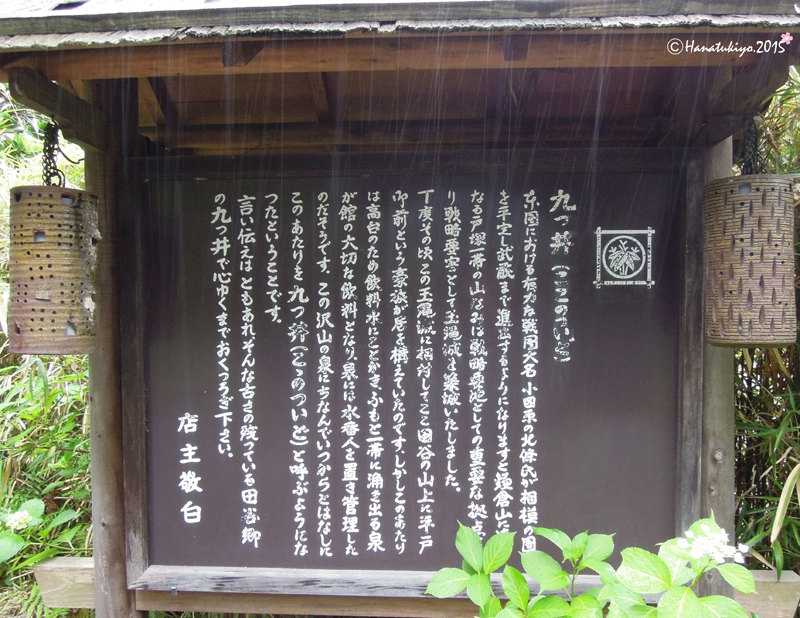 ©Hanatukiyo.2015
九つ井（ここのついど）
東国における有力な戦国大名 小田原の北條氏が相模の国
を平定し武蔵まで進出するようになりますと鎌倉山に
なる戸塚一帯の山なみは戦略要地としての重要な拠点
り戦略要害として玉縄城を築城いたしました。
丁度その頃この玉縄城に相対してここ田谷の山上に平戸
御前という豪族が居を構えていたのです。しかしこのあたり
は高台のため飲料水にことかき、ふもと一帯に涌き出る泉
が館の大切な飲料となり、泉には水番人を置き管理した
のだそうです。この沢山の泉にちなんでいつからとはなしに
このあたりを 九つ井（ここのついど）と呼ぶようにな
つたということです。
言い伝えはともあれ、そんな古さの残っている田谷郷
の九つ井で心ゆくまでおくつろぎ下さい。
店主敬白